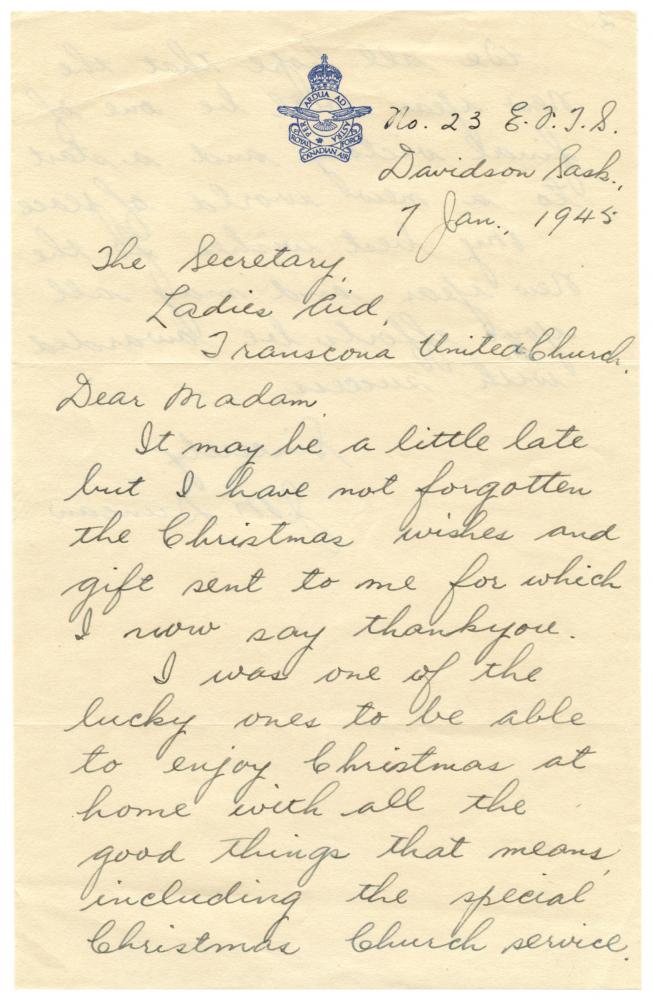 PER ARDUA AD ASTRA
ROYAL CANADIAN AIR FORCE
No. 23 E.F.T.S.
Davidson Sask.,
7 Jan., 1945
The Secretary,
Ladies Aid,
Transcona United Church.
Dear Madam
It may be a little late
but I have not forgotten
the Christmas wishes and
gift sent to me for which
I now say thankyou.
I was one of the
lucky ones to be able
to enjoy Christmas at
home with all the
good things that means,
including the special
Christmas Church service.